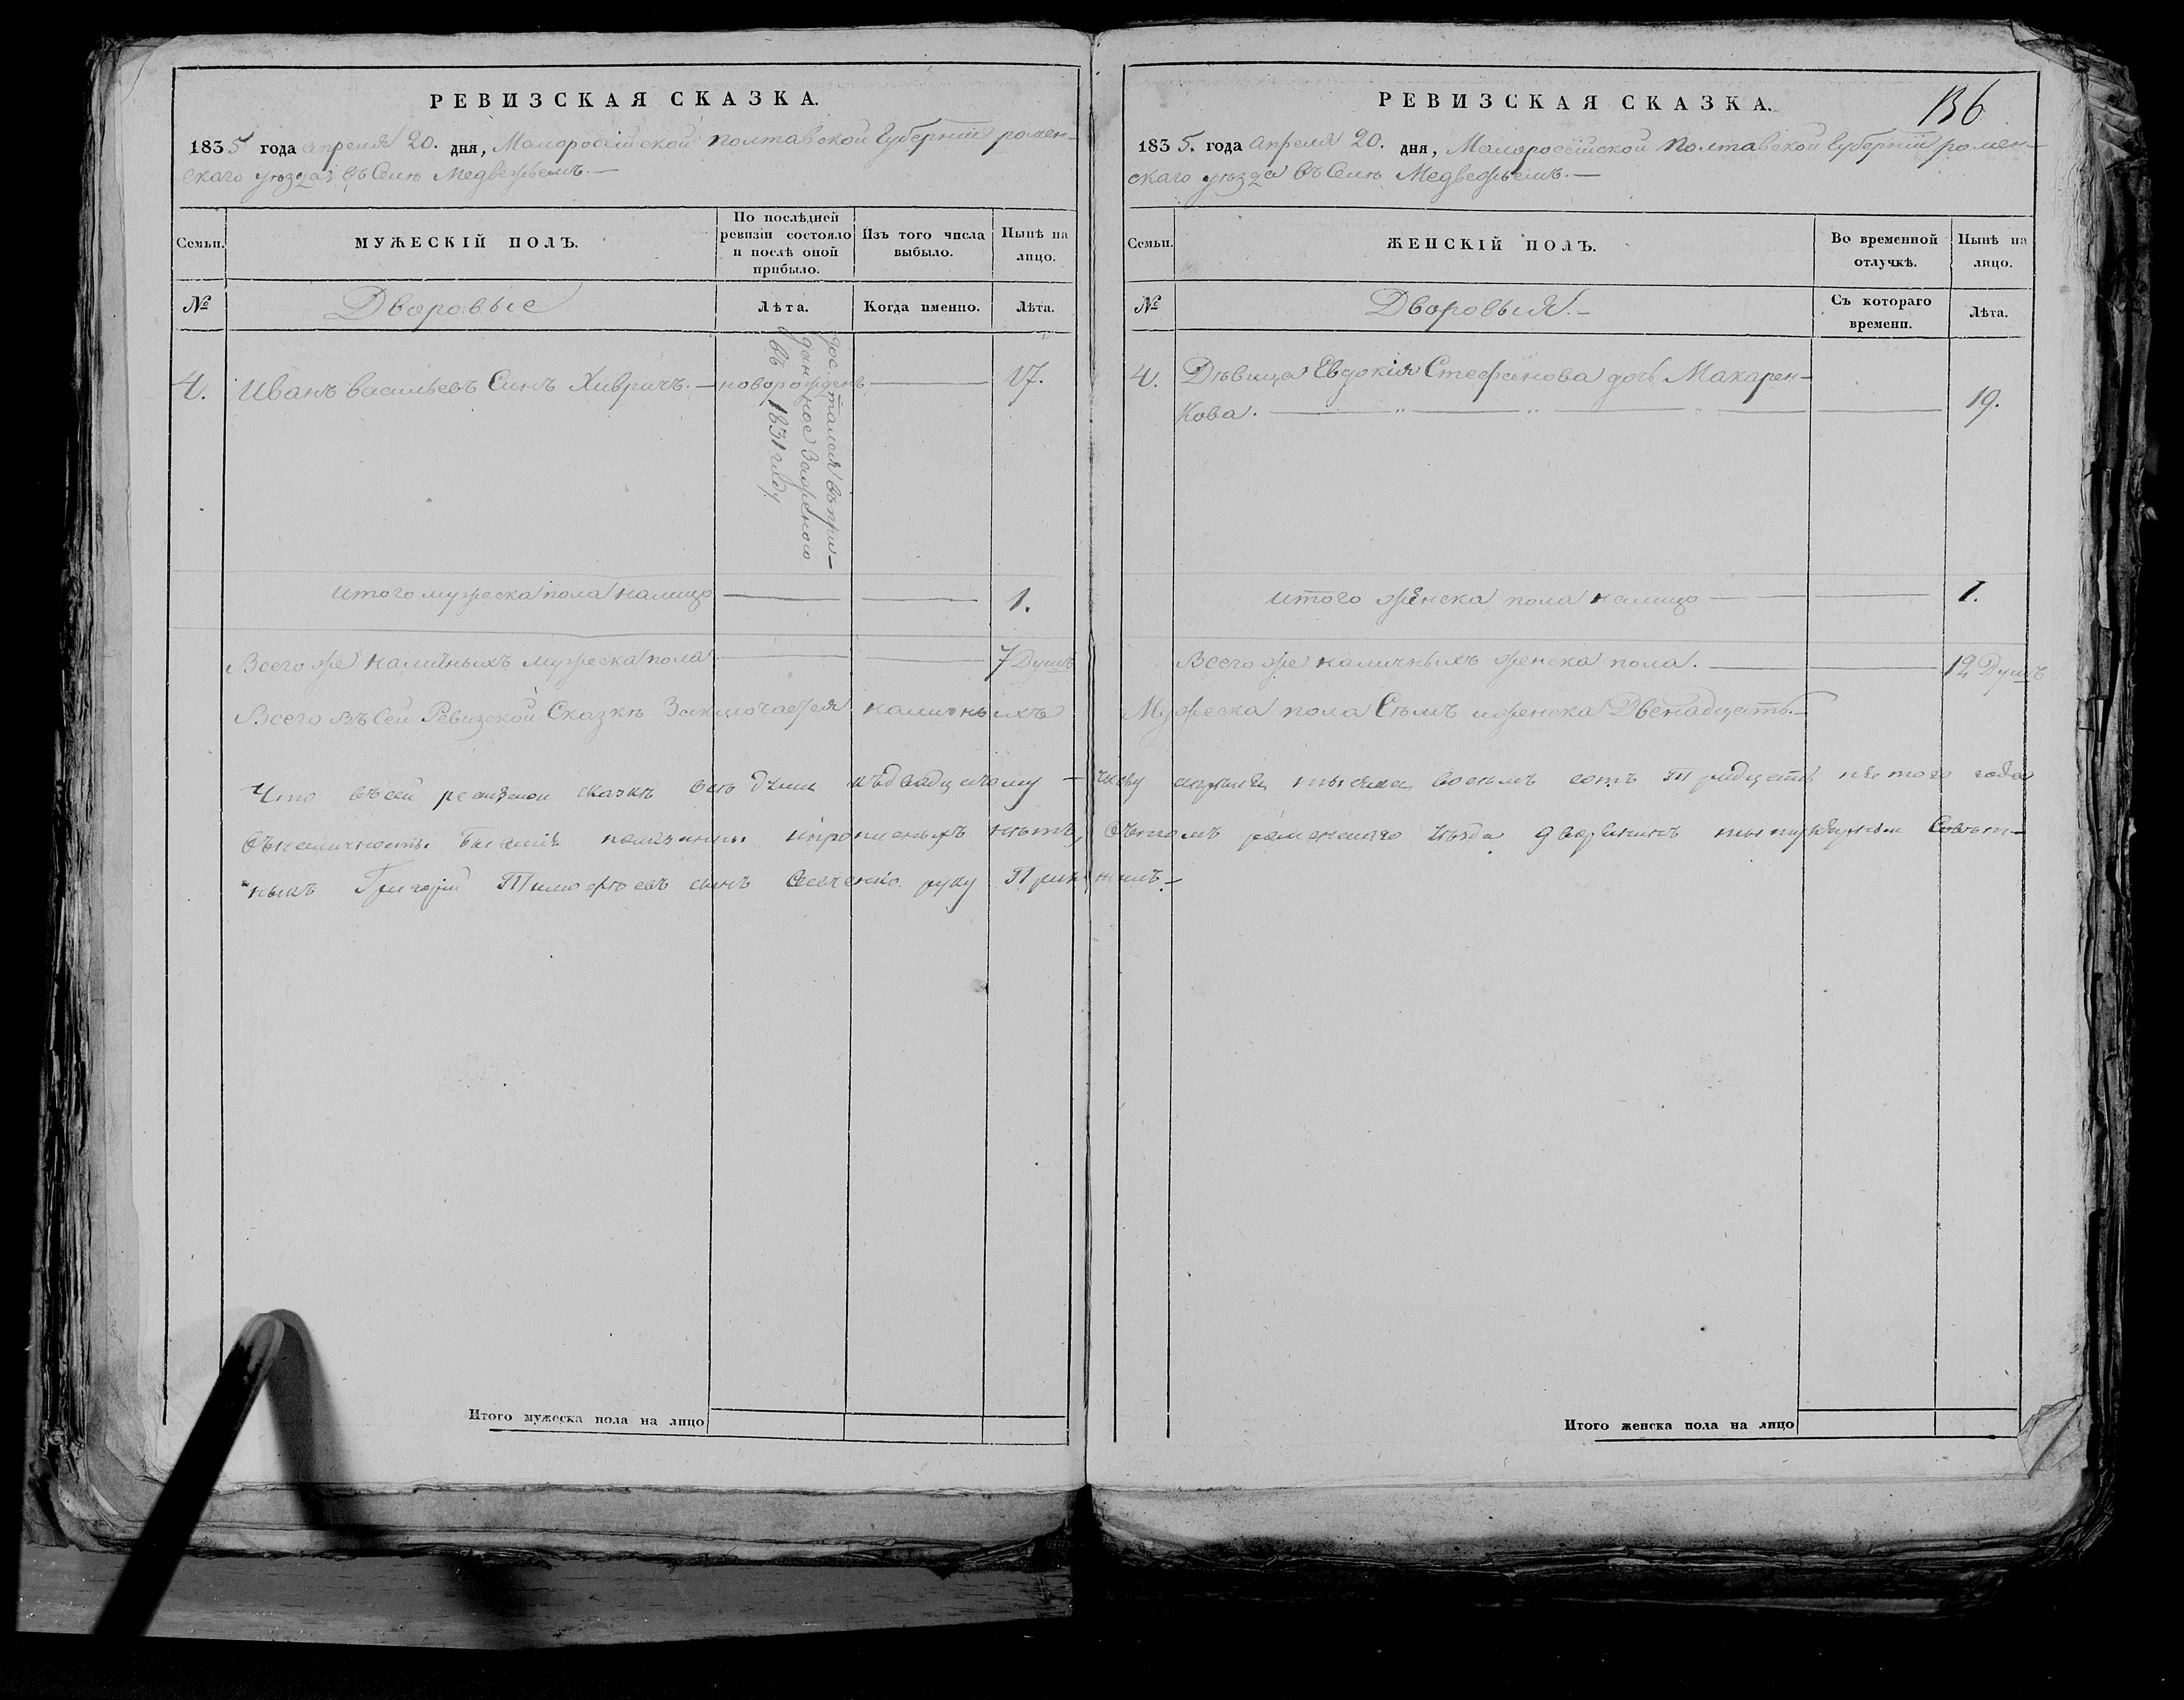 РЕВИЗСКАЯ СКАЗКА.
1835 года апреля 20. дня, Малоросѣійской полтавской Губерніи ромен-
скаго уѣзда въ Селѣ Медвежьемъ.—
Семьи.
МУЖЕСКІЙ ПОЛЪ.
По послѣдней
ревизіи состояло
и послѣ оной
прибыло.
Изъ того числа
выбыло.
Нынѣ на
лицо.
№
Дворовые
Лѣта.
Когда именно.
Лѣта.
4. Иванъ васильевъ Синъ Хивричъ. — новорожденъ — 17.
достался въ при-
данное За женою
въ 1831 году
итого мужеска пола налицо — — 1.
Всего же наличныхъ мужеска пола — — 7 Душъ
Всего Въ Сей Ревизской Сказкѣ Заключается наличныхъ
Что въ сей ревизской сказкѣ всѣ души къ двадцатому
въ наличности показанны и прописныхъ нѣтъ,
никъ Григорій Тимофѣевъ сынъ руку При-
РЕВИЗСКАЯ СКАЗКА.
136
1835. года апреля 20. дня, Малоросѣійской Полтавской Губерніи ромен-
скаго уѣзда въ Селѣ Медвежьемъ.—
Семьи.
ЖЕНСКІЙ ПОЛЪ.
Во временной
отлучкѣ.
Нынѣ на
лицо.
№
Дворовыя.—
Съ котораго
времени.
Лѣта.
4. Дѣвица Евдокія Стефанова дочь Макарен-
кова. — „ — „ — „ — — 19.
итого женска пола налицо — — 1.
Всего же наличныхъ женска пола. — — 12 Душъ
Мужеска пола Семъ и женска Двенадцать.—
числу апреля тысяча восемъ сотъ Тридцать пятого года
въ томъ роменскаго уѣзда дворянинъ титулярный Совѣт-
жилъ.—
Итого мужеска пола на лицо
Итого женска пола на лицо